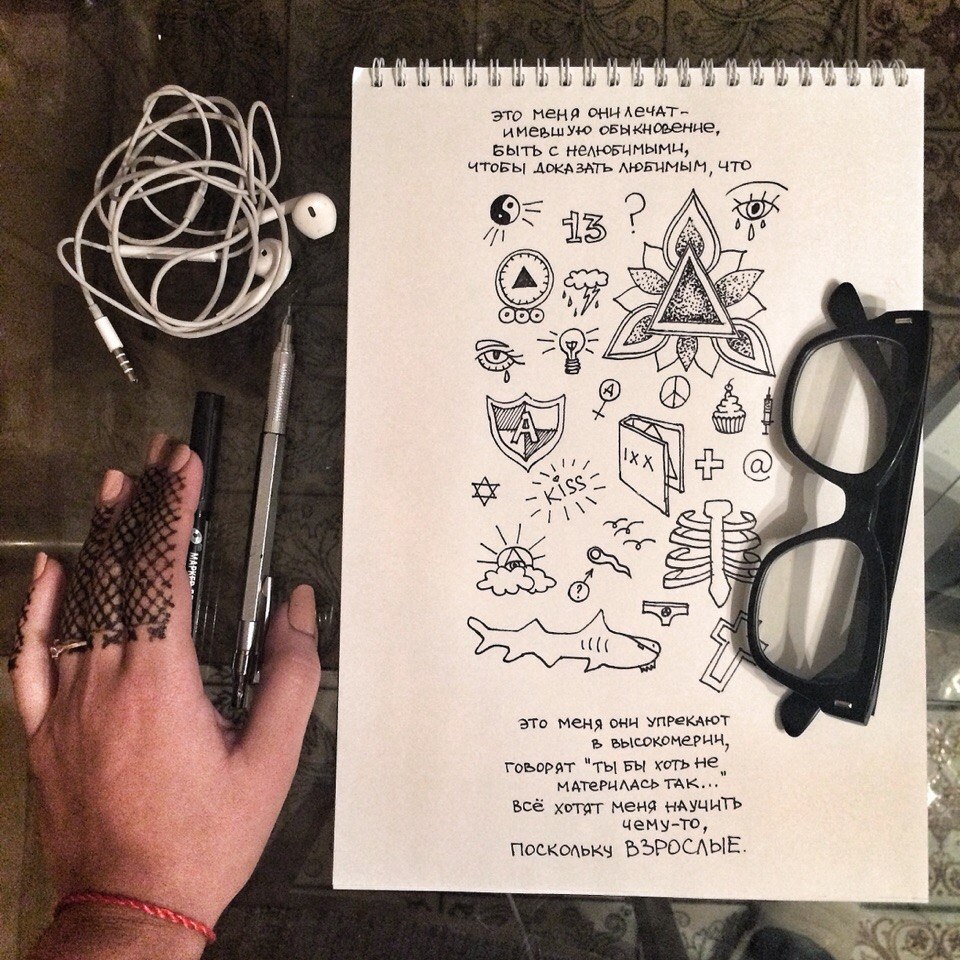 ЭТО МЕНЯ ОНИ ЛЕЧАТ-
ИМЕВШУЮ ОБЫКНОВЕНИЕ,
БЫТЬ С НЕЛЮБИМЫМИ,
ЧТОБЫ ДОКАЗАТЬ ЛЮБИМЫМ, ЧТО
13 ?
A
A
IXX
+ @
KISS
A
?
МАРКЕР
ЭТО МЕНЯ ОНИ УПРЕКАЮТ
В ВЫСОКОМЕРИИ,
ГОВОРЯТ "ТЫ БЫ ХОТЬ НЕ
МАТЕРИЛАСЬ ТАК..."
ВСЁ ХОТЯТ МЕНЯ НАУЧИТЬ
ЧЕМУ-ТО,
ПОСКОЛЬКУ ВЗРОСЛЫЕ.